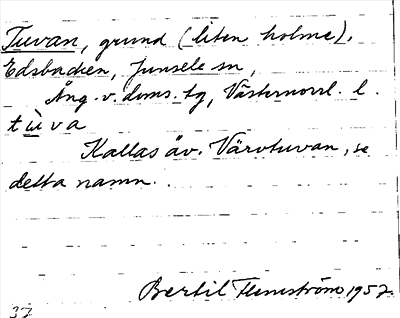 Tuvan, grund (liten holme),
Edsbacken, Junsele sn,
Ång. v. doms. tg, Västernorrl. l.
tùva
Kallas äv. Värvtuvan, se
detta namn.
Bertil Flemström 1957
37